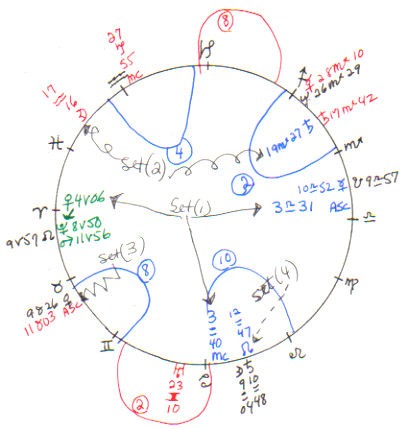 8
27
♑
55
MC
♑
17
♒
16
☊
♀ 28 ♏ 10
♆ 26 ♏ 29
♄ 17 ♏ 42
19 ♏ 27 ♄
♏
♓
4
set(2)
2
♀ 4 ♈ 06
10 ♎ 52
☋ 9 ♎ 57
♈
☿ 8 ♈ 50
♂ 11 ♈ 56
9 ♈ 57 ☊
set(1)
3 ♎ 31
ASC
♎
set(3)
8
10
set(4)
♉
11 ♉ 03 ASC
♍
3
♋
40
MC
12
♋
47
☊
♊
♌
2
23
♊
10
♋
9
♋
04
10
♋
48